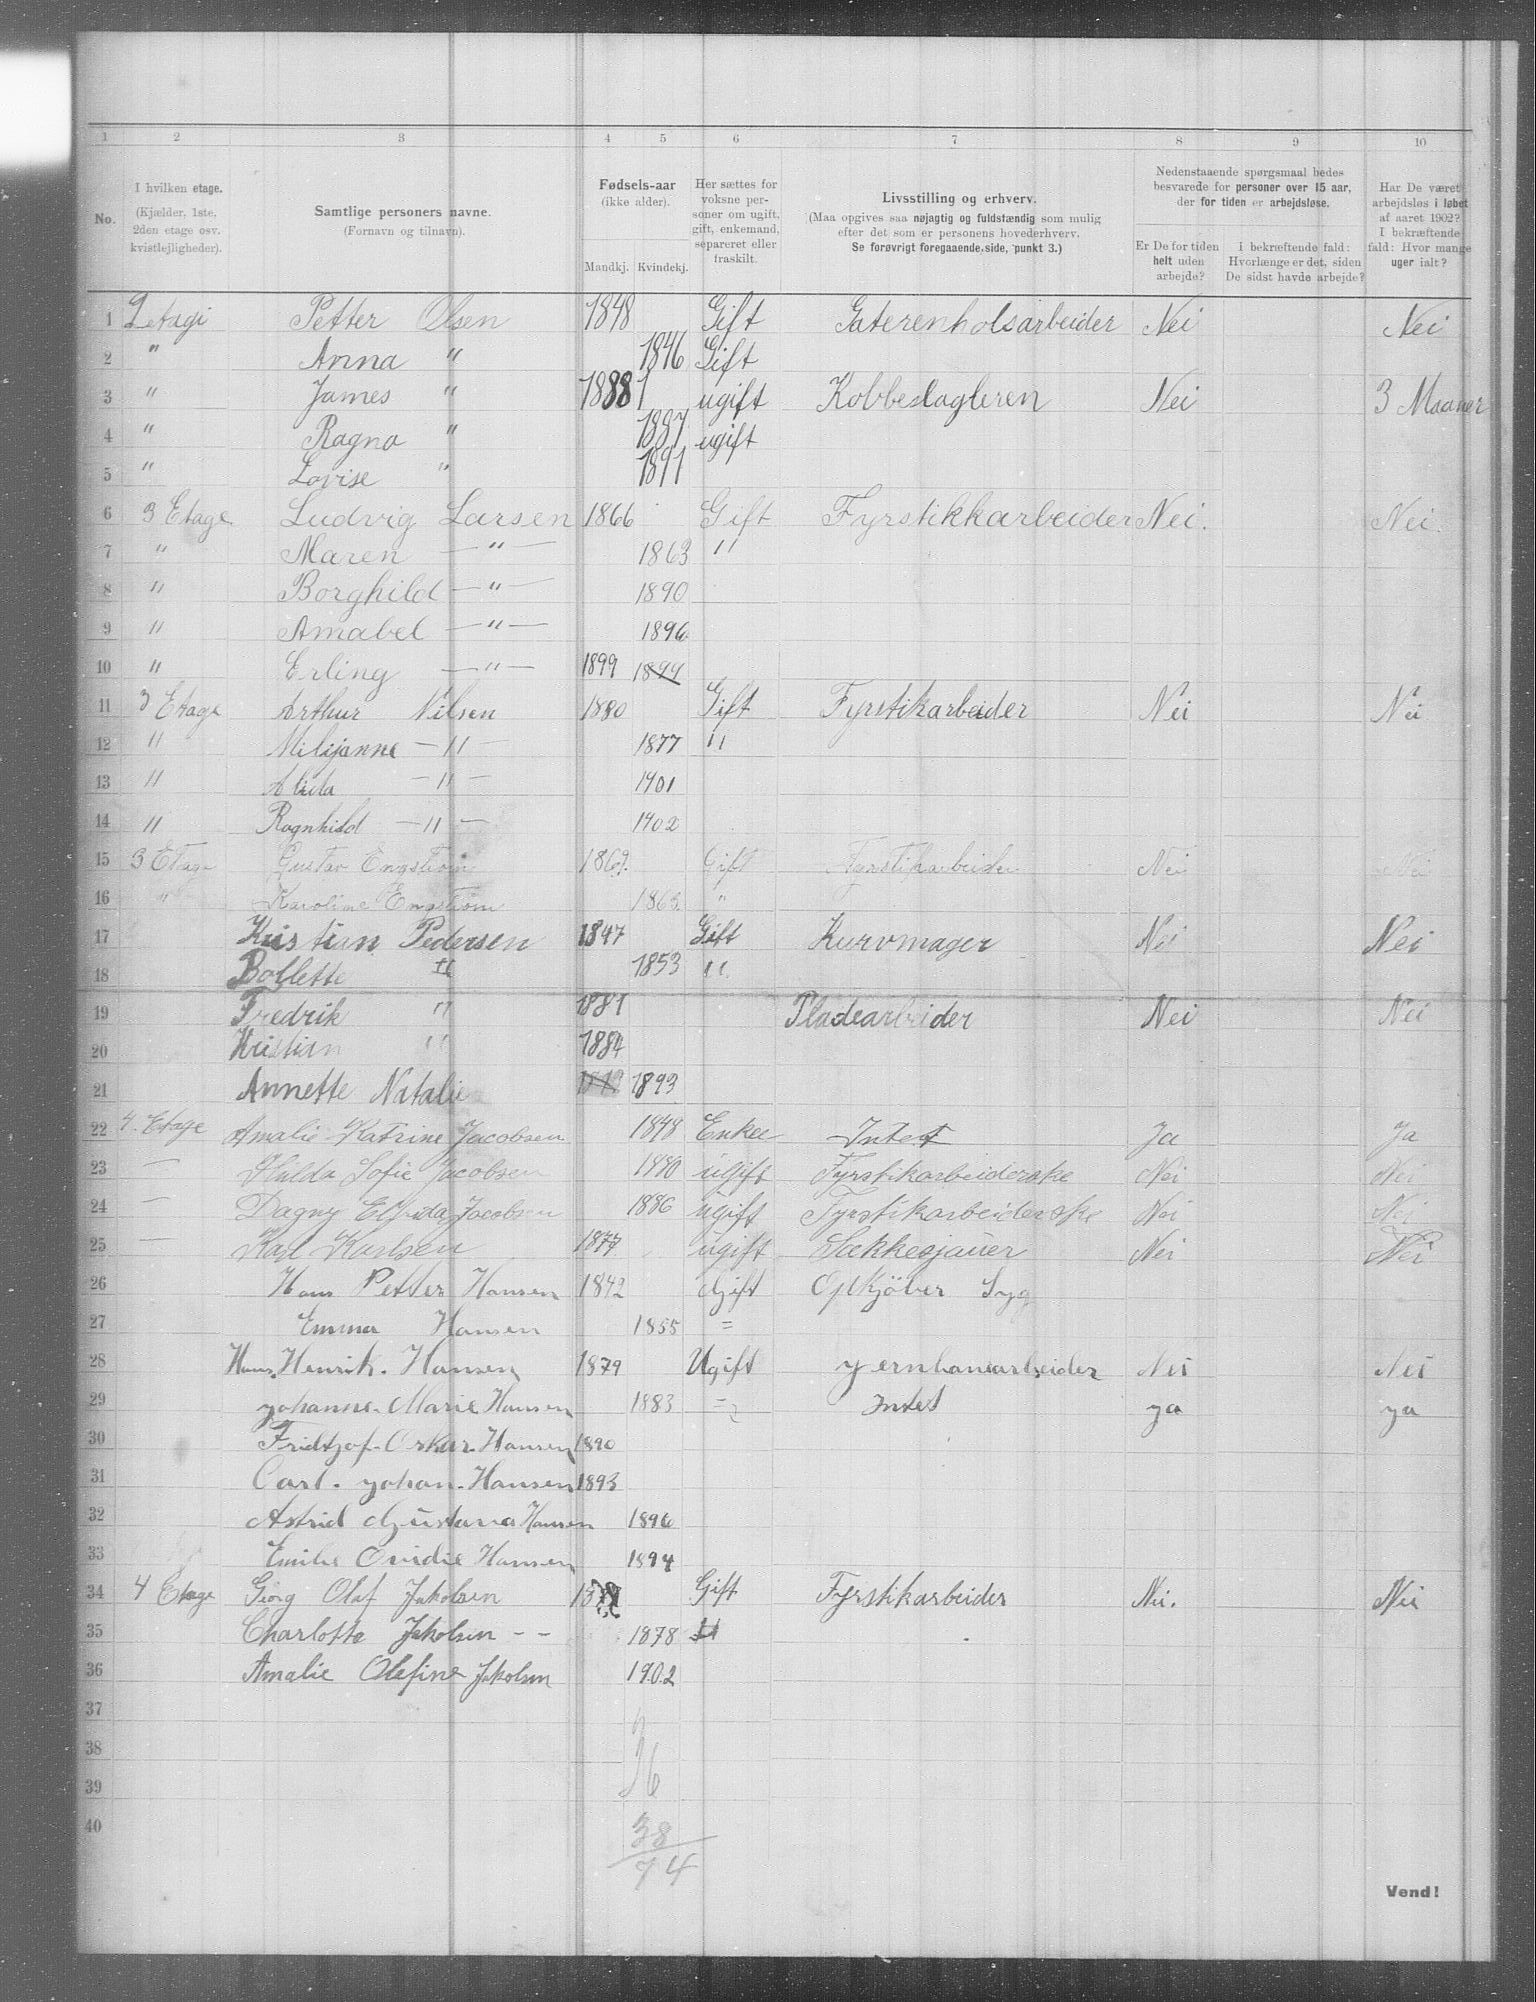 1 2 3 4 5 6 7 8 9 10
No.
I hvilken etage.
(Kjælder, 1ste,
2den etage osv.
kvistlejligheder).
Samtlige personers navne.
(Fornavn og tilnavn).
Fødsels-aar
(ikke alder).
Mandkj. Kvindekj.
Her sættes for
voksne per-
soner om ugift,
gift, enkemand,
separeret eller
fraskilt.
Livsstilling og erhverv.
(Maa opgives saa nøjagtig og fuldstændig som mulig
efter det som er personens hovederhverv.
Se forøvrigt foregaaende side, punkt 3.)
Nedenstaaende spørgsmaal bedes
besvarede for personer over 15 aar,
der for tiden er arbejdsløse.
Er De for tiden
helt uden
arbejde?
I bekræftende fald:
Hvorlænge er det, siden
De sidst havde arbejde?
Har De været
arbejdsløs i løbet
af aaret 1902?
I bekræftende
fald: Hvor mange
uger ialt?
1 2 etagi Petter Olsen 1848 Gift Gaterenholsarbeider Nei Nei
2 " Anna " 1846 Gift
3 " James " 1888 ugift Kobbeslagleren Nei 3 Maaner
4 " Ragna " 1887 ugift
5 " Lovise " 1891
6 3 Etage Ludvig Larsen 1866 Gift Fyrstikkarbeider Nei. Nei.
7 " Maren — " — 1863 "
8 " Borghild — " — 1890
9 " Amabel — " — 1896
10 " Erling — " — 1899 1899
11 3 Etage Arthur Nilsen 1880 Gift Fyrstikarbeider Nei Nei
12 " Milijanne — " — 1877 "
13 " Alida — " — 1901
14 " Ragnhild — " — 1902
15 3 Etage Gustav Engström 1869. Gift Fyrstikarbeider Nei Nei
16 " Karoline Engström 1863. "
17 Kristian Pedersen 1847 Gift Kurvmager Nei Nei
18 Bollette " 1853 "
19 Fredrik " 1881 Pladearbeider Nei Nei
20 Kristian " 1884
21 Annette Natalie 1893
22 4. Etage Amalie Katrine Jacobsen 1848 Enke Intet Ja Ja
23 — Hulda Sofie Jacobsen 1880 ugift Fyrstikarbeiderske Nei Nei
24 — Dagny Elvida Jacobsen 1886 ugift Fyrstikarbeiderske Nei Nei
25 — Karl Karlsen 1877 ugift Sækkesjauer Nei Nei
26 Hans Petter Hansen 1842 Gift Opkjöber Syg
27 Emma Hansen 1855 =
28 Hans. Henrik. Hansen 1879 Ugift yernbanearbeider Nei Nei
29 yohanne. Marie Hansen 1883 = Intet ya ya
30 Fridtjof. Oskar. Hansen 1890
31 Carl. yohan. Hansen 1893
32 Astrid Gustava Hansen 1896
33 Emilie Ovidie Hansen 1894
34 4 Etage Georg Olaf Jakolsen Gift Fyrstikarbeider Nei. Nei
35 Charlotte Jakolsen - - 1878 "
36 Amalie Olefine Jakolsen 1902
37
38
39
40
36
38
74
Vend!